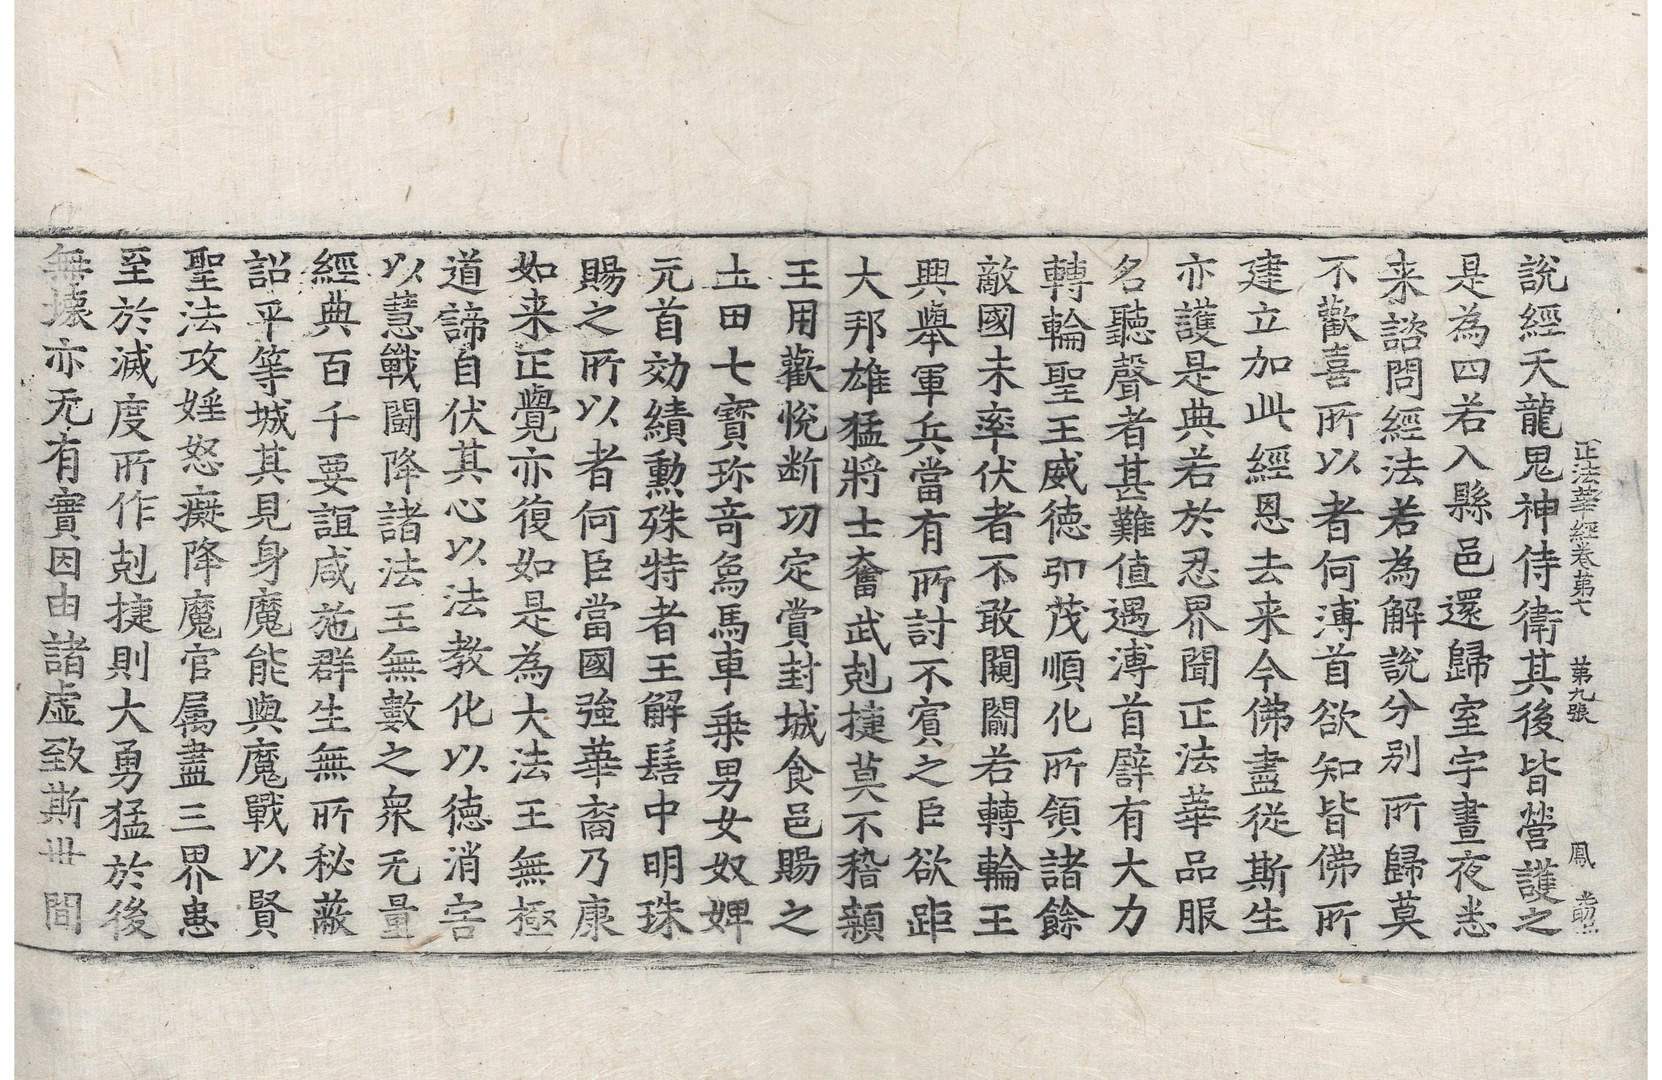 正法華經卷第七　第九張　鳳
說經天龍鬼神侍衛其後皆營護之
是為四若入縣邑還歸室宇晝夜恙
来諮問經法若為解說分別所歸莫
不歡喜所以者何溥首欲知皆佛所
建立加此經恩去来今佛盡從斯生
亦護是典若於忍界聞正法華品服
名聽聲者甚難值遇溥首譬有大力
轉輪聖王威德卬茂順化所領諸餘
敵國未率伏者不敢闚闟若轉輪王
興舉軍兵當有所討不賓之臣欲距
大邦雄猛將士奮武剋捷莫不稽顙
王用歡悅断功定賞封城食邑賜之
土田七寶珎竒爲馬車乗男女奴婢
元首効績勳殊特者王解髻中明珠
賜之所以者何臣當國強華裔乃康
如来正覺亦復如是為大法王無極
道諦自伏其心以法教化以德消害
以慧戰鬪降諸法王無數之衆无量
經典百千要誼咸施群生無所秘蔽
詔平等城其見身魔能與魔戰以賢
聖法攻婬怒癡降魔官属盡三界患
至於滅度所作剋捷則大勇猛於後
無壞亦无有實因由諸虚致斯丗間